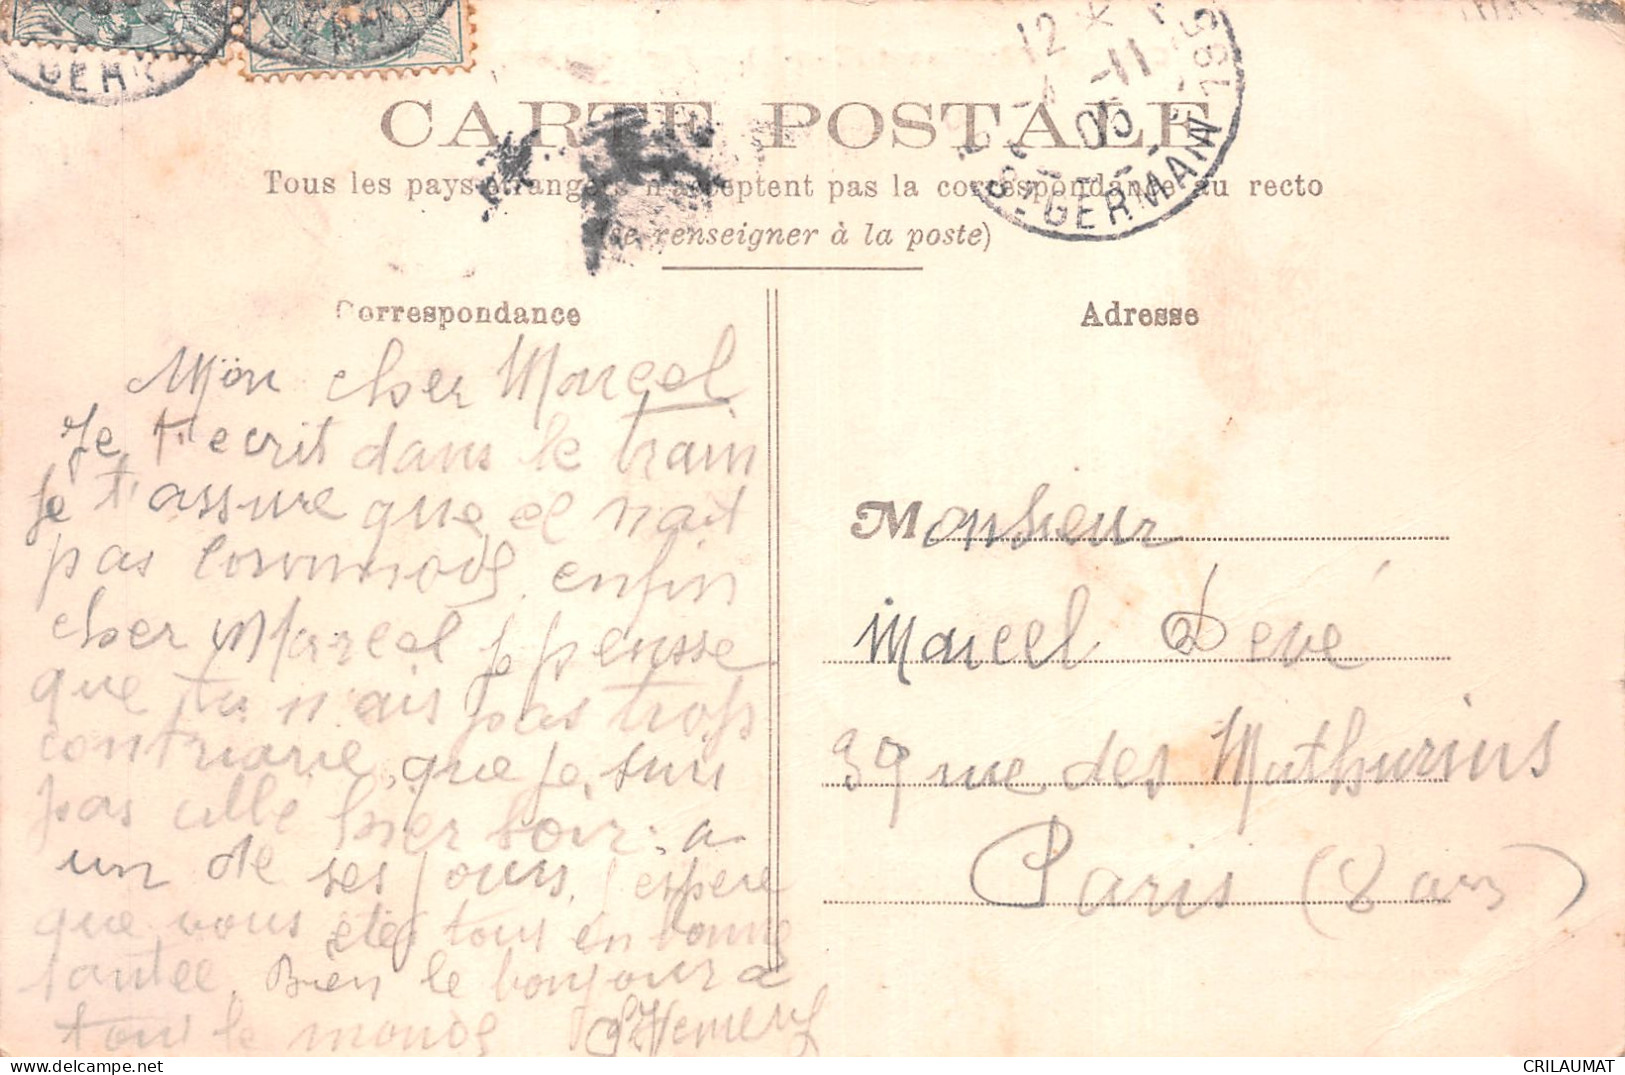 CARTE POSTALE
Tous les pays étrangers n'acceptent pas la correspondance au recto
(se renseigner à la poste)
Correspondance
Adresse
Mon cher Marcel
Je t'ecrit dans le train
Je t'assure que ce n'ait
pas commode enfin
cher Marcel je pensse
que tu n'ais pas trops
contriarie, que je suis
pas allé hier soir. a
un de ses jours, j'espere
que vous êtes tous en bonne
santée. Bien le bonjour a
tous le monde
Monsieur
Marcel Devé
39 rue des Mathurins
Paris (8 arr)
12
-11
05
GERMAIN
CRILAUMAT